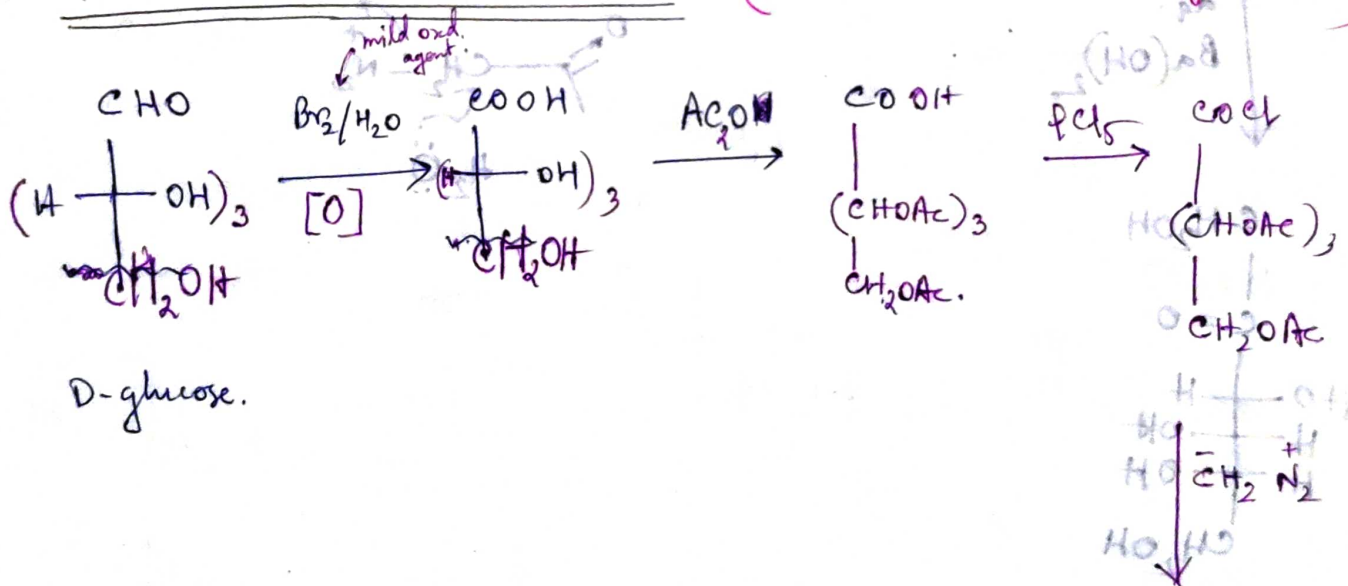 mild oxd. agent.
CHO
(H OH)3
CH2OH
Br2/H2O
[O]
COOH
(H OH)3
CH2OH
Ac2O
COOH
(CHOAc)3
CH2OAc.
PCl5
COCl
(CHOAc)3
CH2OAc
D-glucose.
C̄H2 N⁺2